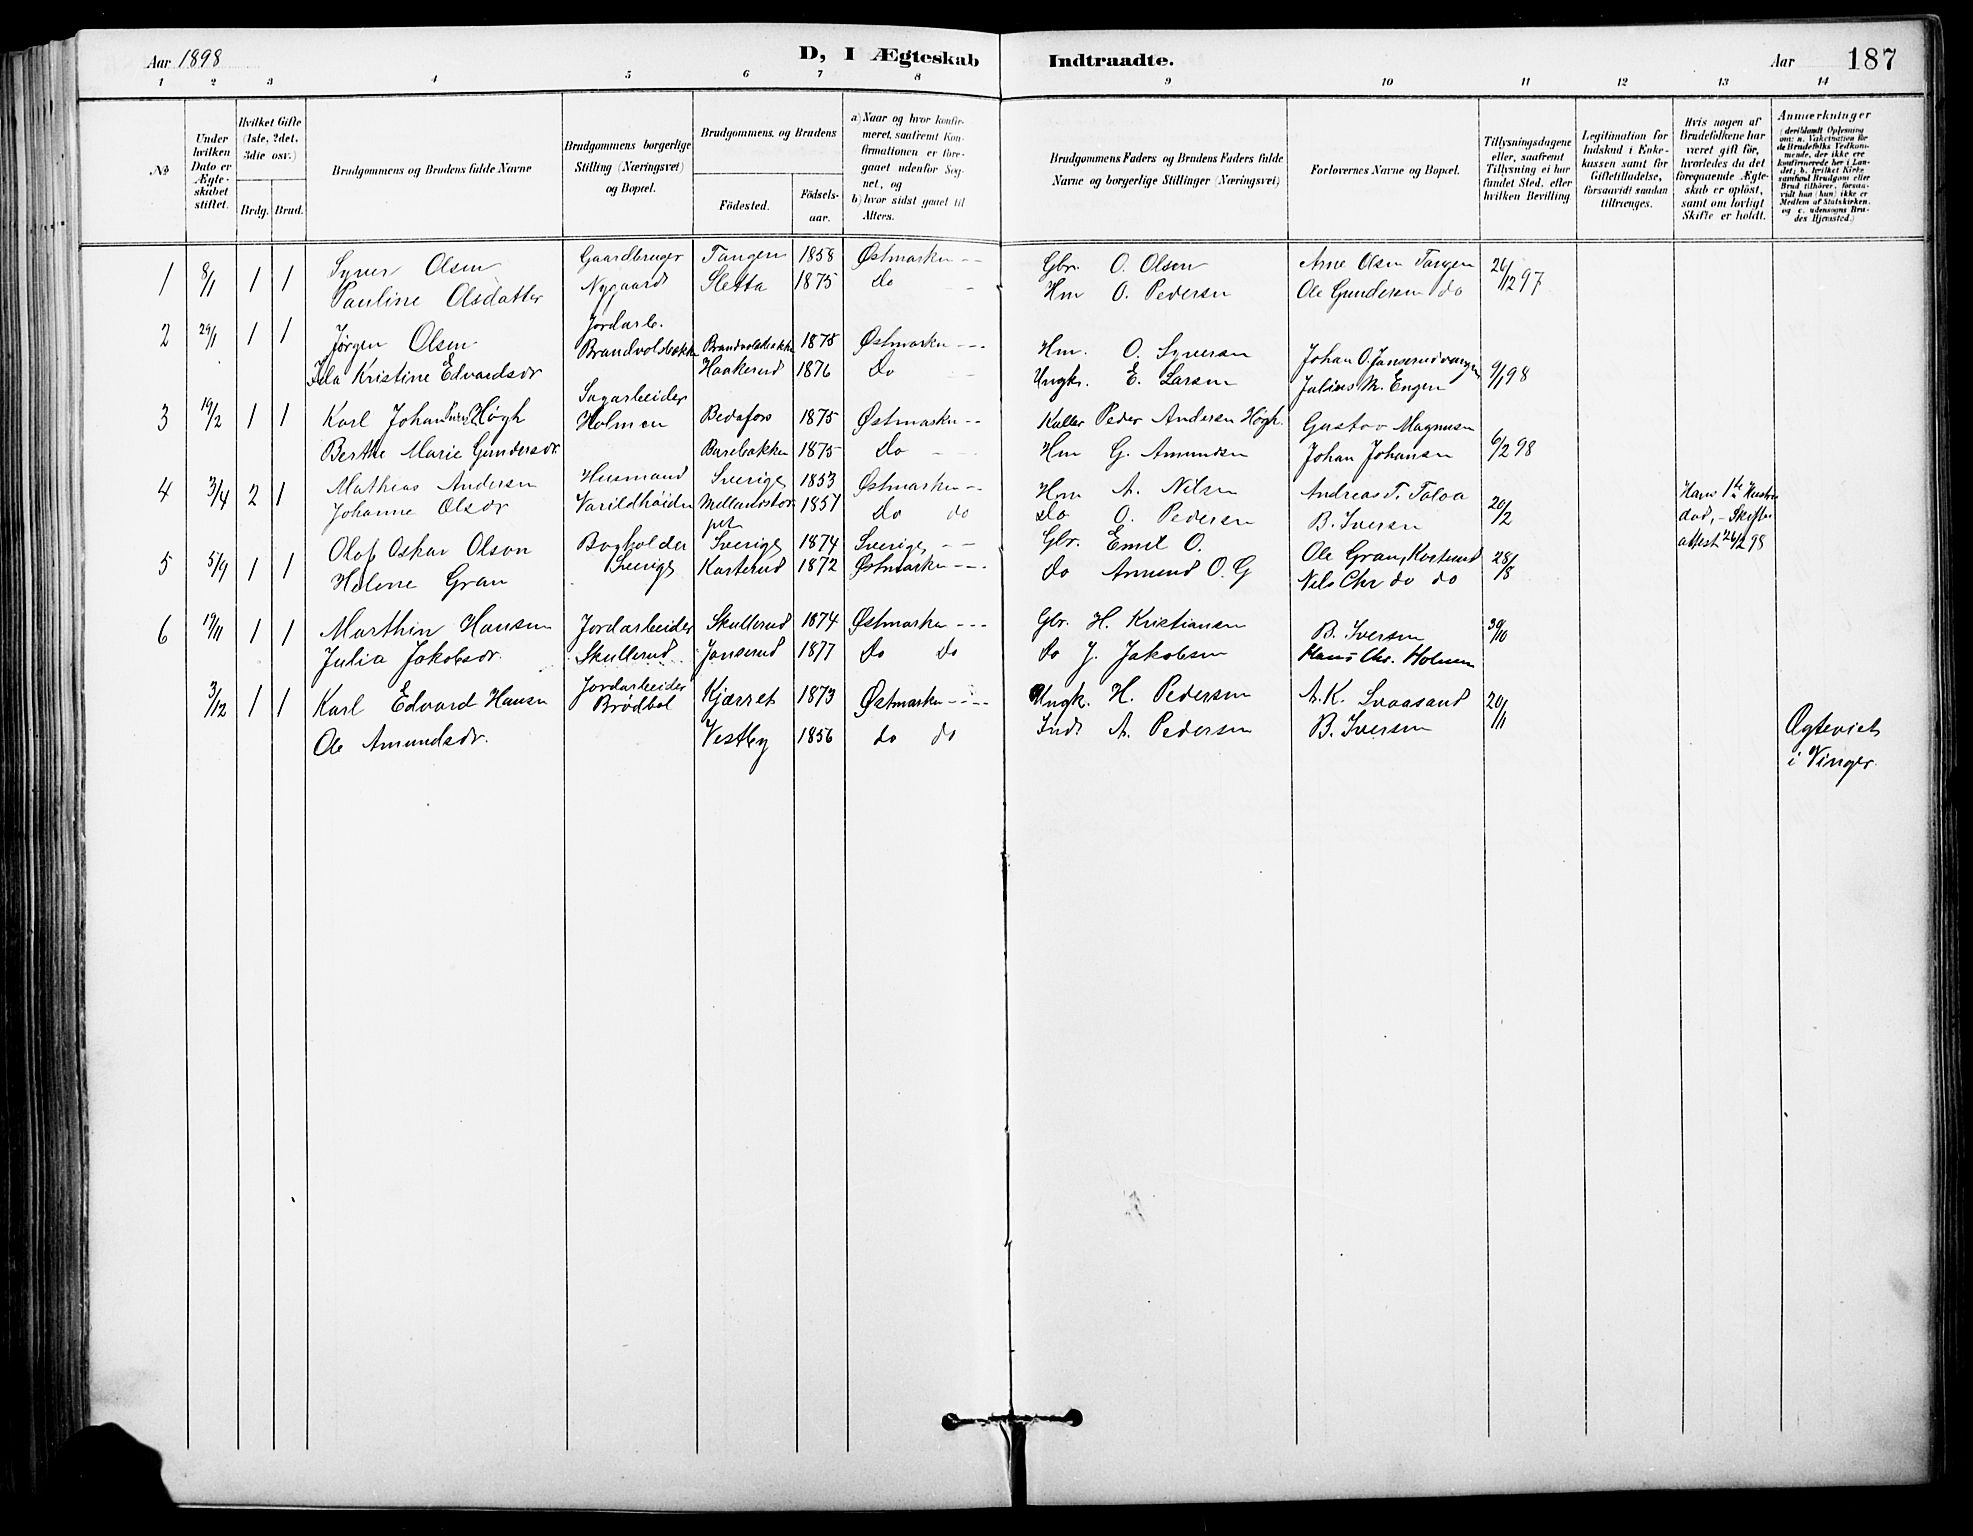 Aar 1898
D, I Ægteskab Indtraadte.
Aar 187
1 2 3 4 5 6 7 8 9 10 11 12 13 14
No
Under hvilken Dato er Ægteskabet stiftet.
Hvilket Gifte (1ste, 2det, 3die osv.)
Brdg. Brud.
Brudgommens og Brudens fulde Navne
Brudgommens borgerlige Stilling (Næringsvei) og Bopæl.
Brudgommens og Brudens
Fødested. Fødselsaar.
a) Naar og hvor konfirmeret, saafremt Konfirmationen er foregaaet udenfor Sognet, og
b) hvor sidst gaaet til Alters.
Brudgommens Faders og Brudens Faders fulde Navne og borgerlige Stillinger (Næringsvei)
Forlovernes Navne og Bopæl.
Tillysningsdagene eller, saafremt Tillysning ei har fundet Sted, efter hvilken Bevilling
Legitimation for Indskud i Enkekassen samt for Giftetilladelse, forsaavidt saadan tiltrænges.
Hvis nogen af Brudefolkene har været gift før, hvorledes da det foregaaende Ægteskab er opløst, samt om lovligt Skifte er holdt.
Anmærkninger
1 8/1 1 1 Syver Olsen Gaardbruger Tangen 1858 Østmarken -- Gbr. O. Olsen Arne Olsen Tangen 26/12 97
Pauline Olsdatter Nygaard Sletta 1875 Do - Hm O. Pedersen Ole Gundersen do
2 29/1 1 1 Jørgen Olsen Jordarb. Brandvolsbakken Brandvolsbakken 1875 Østmarken --- Hm. O. Syversen Johan O. Janserudvangen 9/1 98
Ida Kristine Edvardsdr Haakerud 1876 Do Ungk. E. Larsen Julius M. Engen
3 19/2 1 1 Karl Johan Høgh Sagarbeider Holmen Bedafors 1875 Østmarken -- Peder Andersen Høgh. Gustav Magnusen 6/2 98
Berthe Marie Gundersdr. Barebakken 1875 Do - Hm G. Amundsen Johan Johansen
4 3/4 2 1 Mathias Andersen Husmand Sverige 1853 Østmarken -- Hm A. Nilsen Andreas T. Toloa 20/2 Hans 1ste Hustru
Johanne Olsdr Varildhøiden 1851 Do do Do O. Pedersen B. Iversen død, - Skifte-
attest 26/2 98
5 5/9 1 1 Olof Oskar Olson Bogholder Sverige 1874 Sverige, -- Gbr. Emil O. Ole Gran, Kosterud 28/8
Helene Gran Sverige Kosterud 1872 Østmarken --- do Amund O. G Nils Chr do do
6 19/11 1 1 Marthin Hansen Jordarbeider Skullerud 1874 Østmarken --- Gbr. H. Kristiansen B. Iversen 30/10
Julia Jakobsdr. Skullerud Janserud 1877 Do Do do J. Jakobsen Hans Chr. Holmen
3/12 1 1 Karl Edvard Hansen Jordarbeider Brødbøl Kjærret 1873 Østmarken ---- Ungk. H. Pedersen A. K. Svaasand 20/11
Ole Amundsdr. Vestby 1856 do do Indr A. Pedersen B. Iversen Ægteviet
i Vinger.